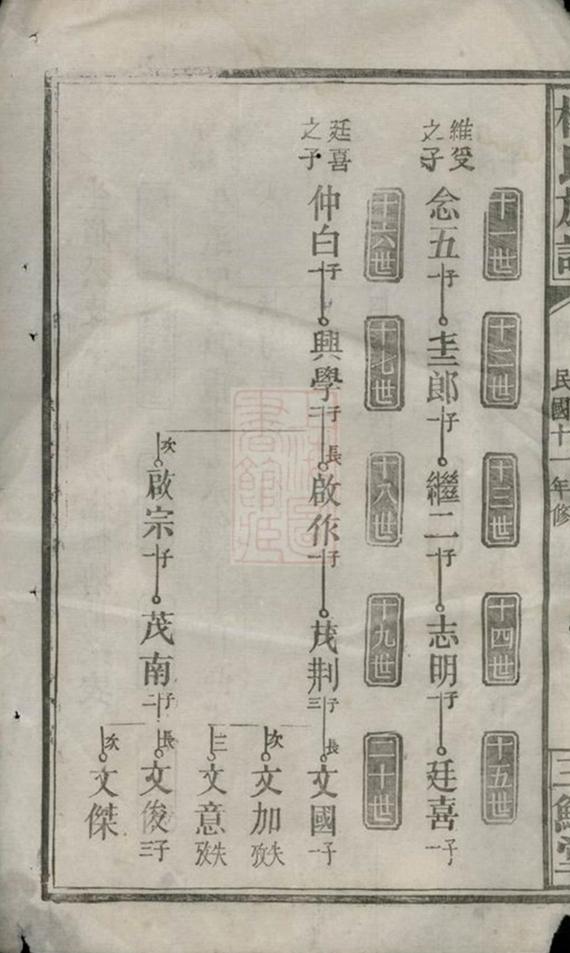 族譜
民國十一年修
三鱣堂
十一世
十二世
十三世
十四世
十五世
維受之子
念五 一子
圭郎 一子
繼二 一子
志明 一子
廷喜 一子
十六世
十七世
十八世
十九世
二十世
廷喜之子
仲白 一子
興學 二子
長 啟作 一子
茂荆 三子
長 文國 一子
次 文加 失攷
三 文意 失攷
次 啟宗 一子
茂南 二子
長 文俊 三子
次 文傑